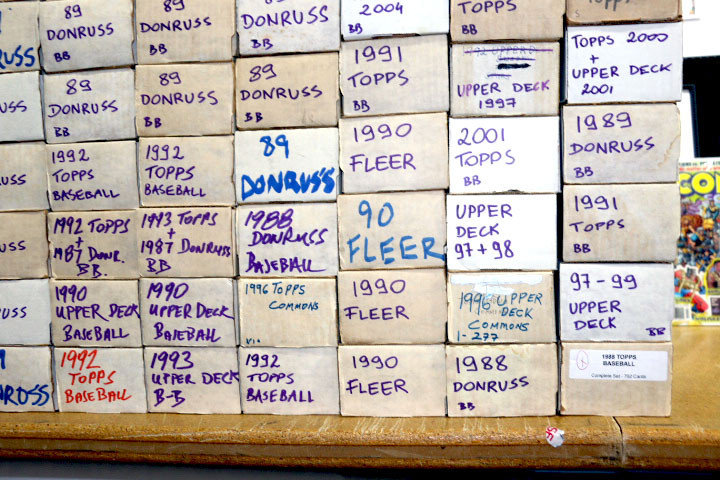 89
DONRUSS
BB
89
DONRUSS
BB
89
DONRUSS
BB
2004
BB
TOPPS
BB
TOPPS
USS
89
DONRUSS
BB
89
DONRUSS
BB
89
DONRUSS
BB
1991
TOPPS
BB
UPPER DECK
1997
TOPPS 2000
+
UPPER DECK
2001
USS
1992
TOPPS
BASEBALL
1992
TOPPS
BASEBALL
89
DONRUSS
1990
FLEER
2001
TOPPS
BB
1989
DONRUSS
BB
USS
1992 TOPPS
+
1987 DONR.
BB.
1993 TOPPS
+
1987 DONRUSS
BB
1988
DONRUSS
BASEBALL
90
FLEER
UPPER
DECK
97+98
1991
TOPPS
BB
USS
1990
UPPER DECK
BASEBALL
1990
UPPER DECK
BASEBALL
1996 TOPPS
COMMONS
1990
FLEER
1996 UPPER
DECK
COMMONS
1-277
97-99
UPPER
DECK
BB
NRUSS
1992
TOPPS
BASEBALL
1993
UPPER DECK
B-B
1992
TOPPS
BASEBALL
1990
FLEER
1988
DONRUSS
BB
1988 TOPPS
BASEBALL
Complete Set - 792 Cards
CO